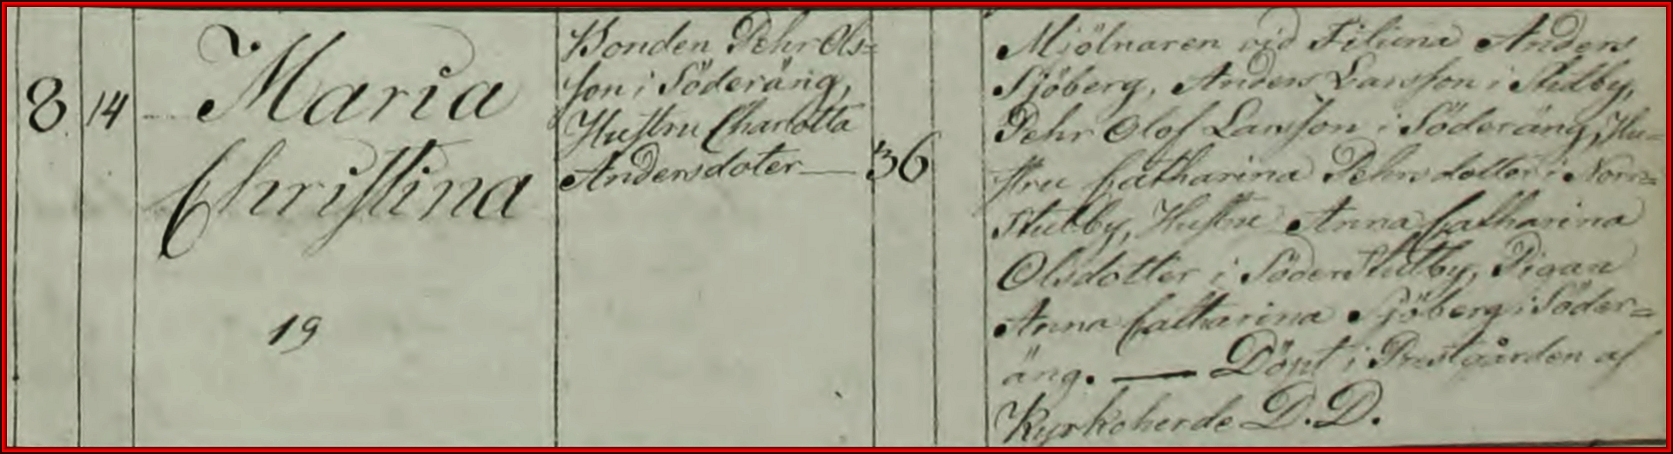 8 14 Maria
Christina
19
Bonden Pehr Ols=
son i Söderäng,
Hustru Charlotta
Andersdoter — 36
Mjölnaren vid Anders
Sjöberg, Anders Larsson i Stubby,
Pehr Olof Larsson i Söderäng, Hu=
stru Catharina Pehrsdotter i Norr=
stubby, Hustru Anna Catharina
Olsdotter i Söderstubby, Pigan
Anna Catharina Sjöberg i Söder=
äng. — Döpt i Prestgården af
Kyrkoherde D. D.